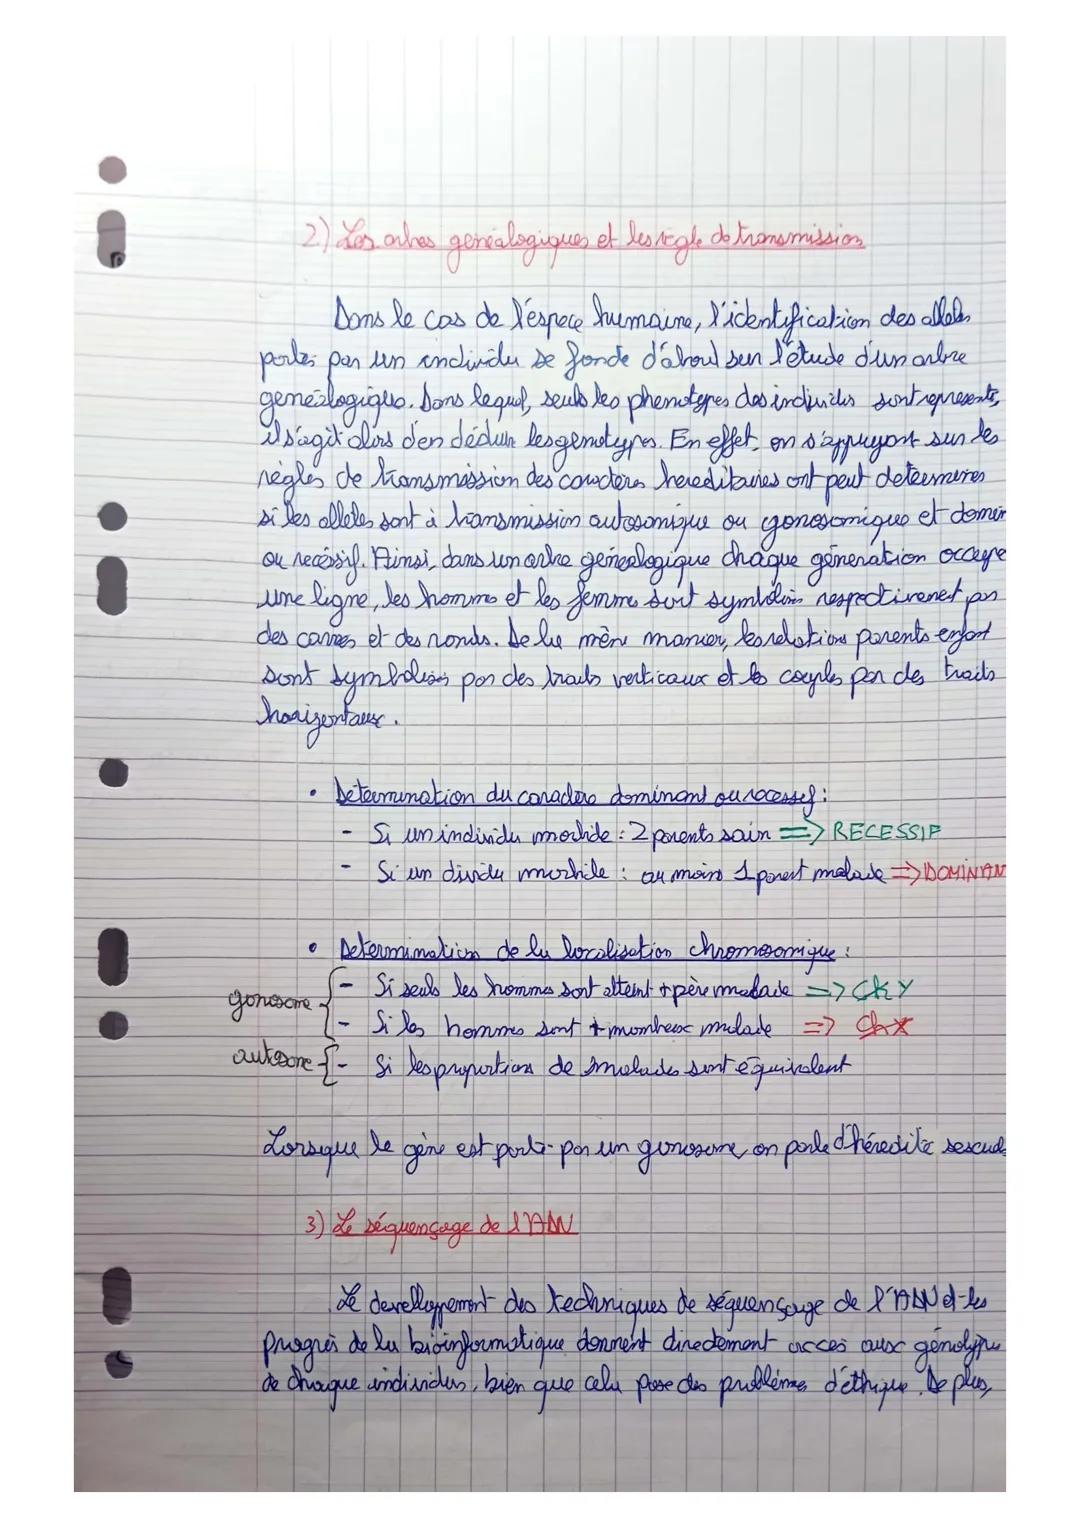 2) Les arbres genéalogiques et les règle de transmission
Dans le cas de l'éspece humaine, l'identification des alleles
portés par un individu se fonde d'abord sur l'étude d'un arbre
genéalogiques. Dans lequel, seuls les phenotypes des individus sont representés,
il s'agit alors d'en déduire les genotypes. En effet, on s'appuyant sur les
règles de transmission des caractères hereditaires ont peut determiner
si les allèles sont à transmission autosomique ou gonosomique et domin
ou recéssif. Ainsi, dans un arbre genéalogique chaque géneration occupe
une ligne, les hommes et les femmes sont symbolisés respectivement par
des carrés et des ronds. De la même manier, les relations parents enfant
sont symbolisés par des traits verticaux et les couples par des traits
horizontaux.
• Détermination du caractère dominant ou recessif :
- Si un individu morbide : 2 parents sain => RECESSIF
- Si un dividu morbide : au moins 1 parent malade => DOMINAN
• Determination de la localisation chromosomique :
gonosome { - Si seuls les hommes sont atteint + père malade => Ck Y
- Si les hommes sont + nombreux malade => Ch X
autosome { - Si les proportions de malades sont équivalent
Lorsque le gène est porté par un gonosome, on parle d'héredité
3) Le séquençage de l'ADN
Le developpement des techniques de séquençage de l'ADN et les
progrès de la bioinformatique donnent directement accès aux génotype
de chaque individus, bien que cela pose des problèmes d'éthique. De plus,